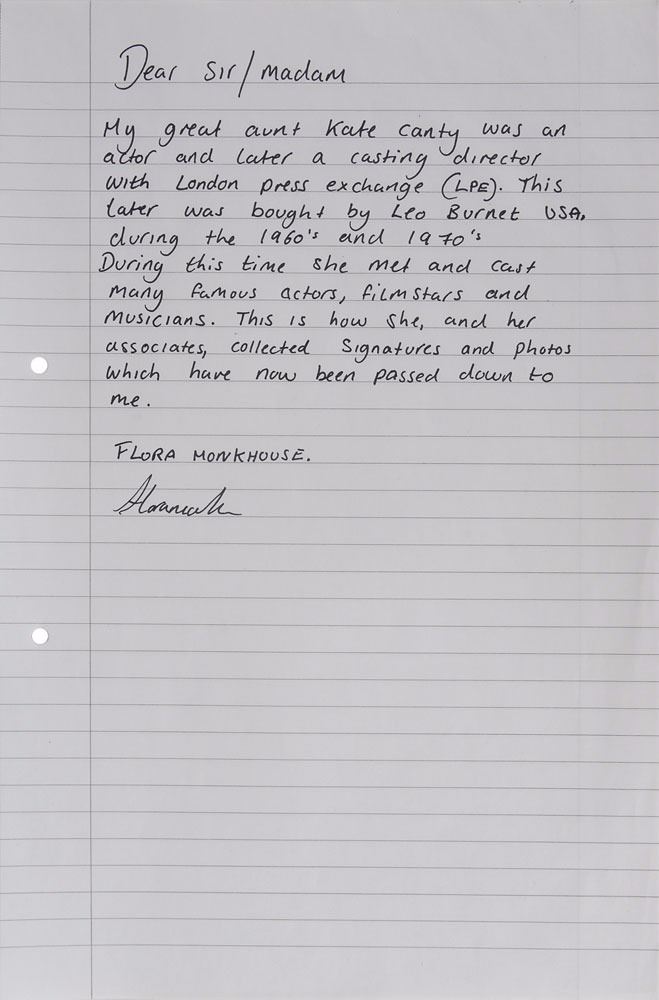 Dear Sir/madam
My great aunt Kate Canty was an
actor and later a casting director
with London press exchange (LPE). This
later was bought by Leo Burnet USA,
during the 1960's and 1970's
During this time she met and cast
many famous actors, filmstars and
musicians. This is how she, and her
associates, collected signatures and photos
which have now been passed down to
me.
FLORA MONKHOUSE.